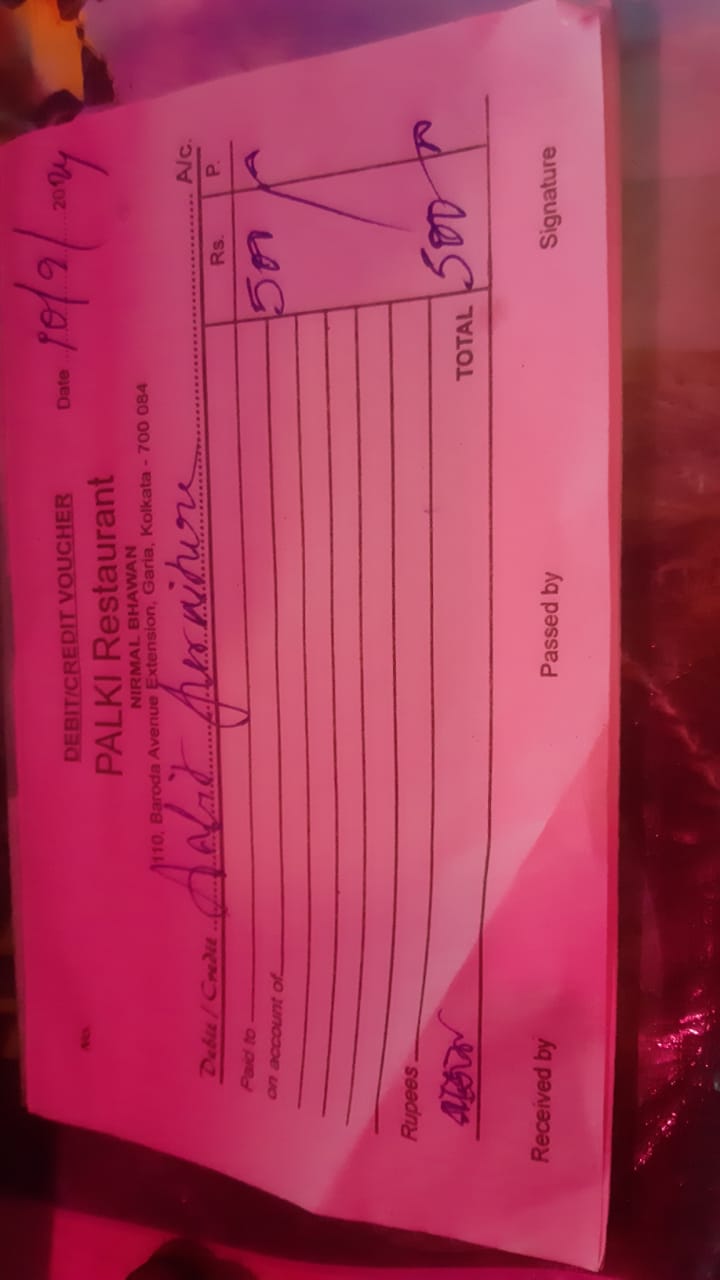 No.
DEBIT/CREDIT VOUCHER
Date 10/9/2024
PALKI Restaurant
NIRMAL BHAWAN
110, Baroda Avenue Extension, Garia, Kolkata - 700 084
Debit / Credit furniture A/c.
Rs. P.
Paid to
500
on account of
Rupees
TOTAL 500
Received by Passed by Signature